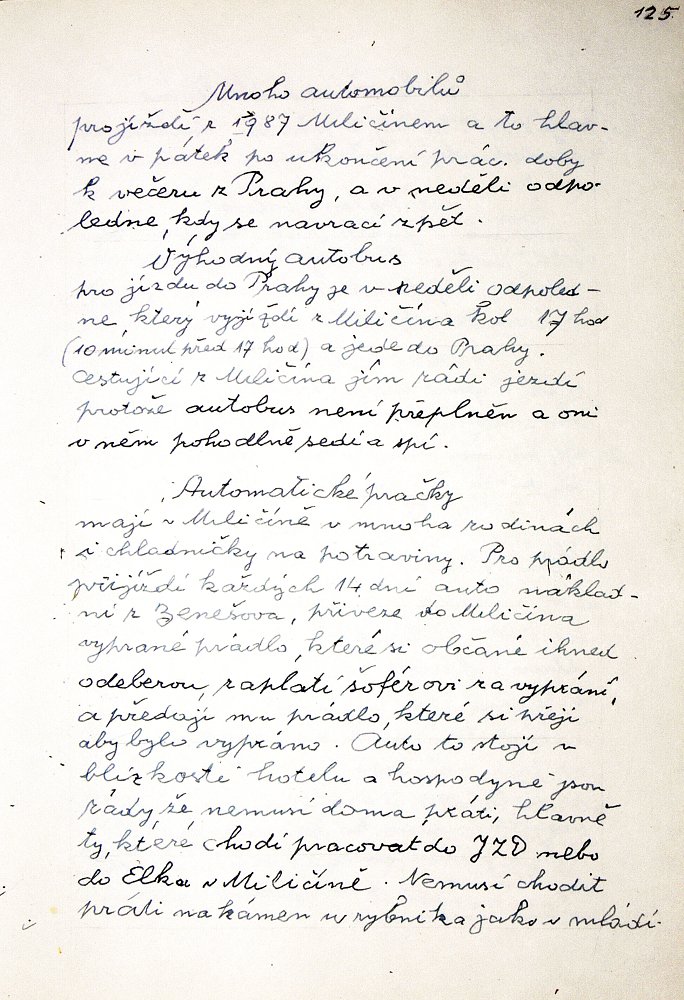 125.
Mnoho automobilů
projíždí r 1987 Miličínem a to hlav-
ne v pátek po ukončení prác. doby
k večeru z Prahy, a v neděli odpo-
ledne, kdy se navrací zpět.
Výhodný autobus
pro jízdu do Prahy je v neděli odpoled-
ne, který vyjíždí z Miličína kol 17 hod
(10 minut před 17 hod) a jede do Prahy.
Cestující z Miličína jím rádi jezdí
protože autobus není přeplněn a oni
v něm pohodlně sedí a spí.
Automatické pračky
mají v Miličíně v mnoha rodinách
i chladničky na potraviny. Pro prádlo
přijíždí každých 14 dní auto náklad-
ní z Benešova, přiveze do Miličína
vyprané prádlo, které si občané ihned
odeberou, zaplatí šoférovi za vyprání,
a předají mu prádlo, které si přejí
aby bylo vypráno. Auto to stojí v
blízkosti hotelu a hospodyně jsou
rády že nemusí doma práti, hlavně
ty, které chodí pracovat do JZD nebo
do Elka v Miličíně. Nemusí chodit
práti na kámen u rybníka jako v mládí.